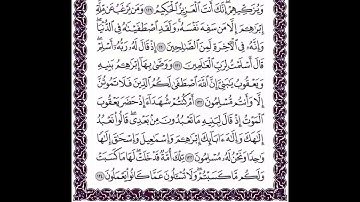 وَيُزَكِّيهِمْۚ إِنَّكَ أَنتَ ٱلْعَزِيزُ ٱلْحَكِيمُ ١٢٩ وَمَن يَرْغَبُ عَن مِّلَّةِ
إِبْرَٰهِـۧمَ إِلَّا مَن سَفِهَ نَفْسَهُۥۚ وَلَقَدِ ٱصْطَفَيْنَٰهُ فِى ٱلدُّنْيَاۖ
وَإِنَّهُۥ فِى ٱلْـَٔاخِرَةِ لَمِنَ ٱلصَّٰلِحِينَ ١٣٠ إِذْ قَالَ لَهُۥ رَبُّهُۥٓ أَسْلِمْۖ
قَالَ أَسْلَمْتُ لِرَبِّ ٱلْعَٰلَمِينَ ١٣١ وَوَصَّىٰ بِهَآ إِبْرَٰهِـۧمُ بَنِيهِ
وَيَعْقُوبُ يَٰبَنِىَّ إِنَّ ٱللَّهَ ٱصْطَفَىٰ لَكُمُ ٱلدِّينَ فَلَا تَمُوتُنَّ
إِلَّا وَأَنتُم مُّسْلِمُونَ ١٣٢ أَمْ كُنتُمْ شُهَدَآءَ إِذْ حَضَرَ يَعْقُوبَ
ٱلْمَوْتُ إِذْ قَالَ لِبَنِيهِ مَا تَعْبُدُونَ مِنۢ بَعْدِى قَالُوا۟ نَعْبُدُ
إِلَٰهَكَ وَإِلَٰهَ ءَابَآئِكَ إِبْرَٰهِـۧمَ وَإِسْمَٰعِيلَ وَإِسْحَٰقَ إِلَٰهًا
وَٰحِدًا وَنَحْنُ لَهُۥ مُسْلِمُونَ ١٣٣ تِلْكَ أُمَّةٌ قَدْ خَلَتْۖ لَهَا مَا كَسَبَتْ
وَلَكُم مَّا كَسَبْتُمْۖ وَلَا تُسْـَٔلُونَ عَمَّا كَانُوا۟ يَعْمَلُونَ ١٣٤